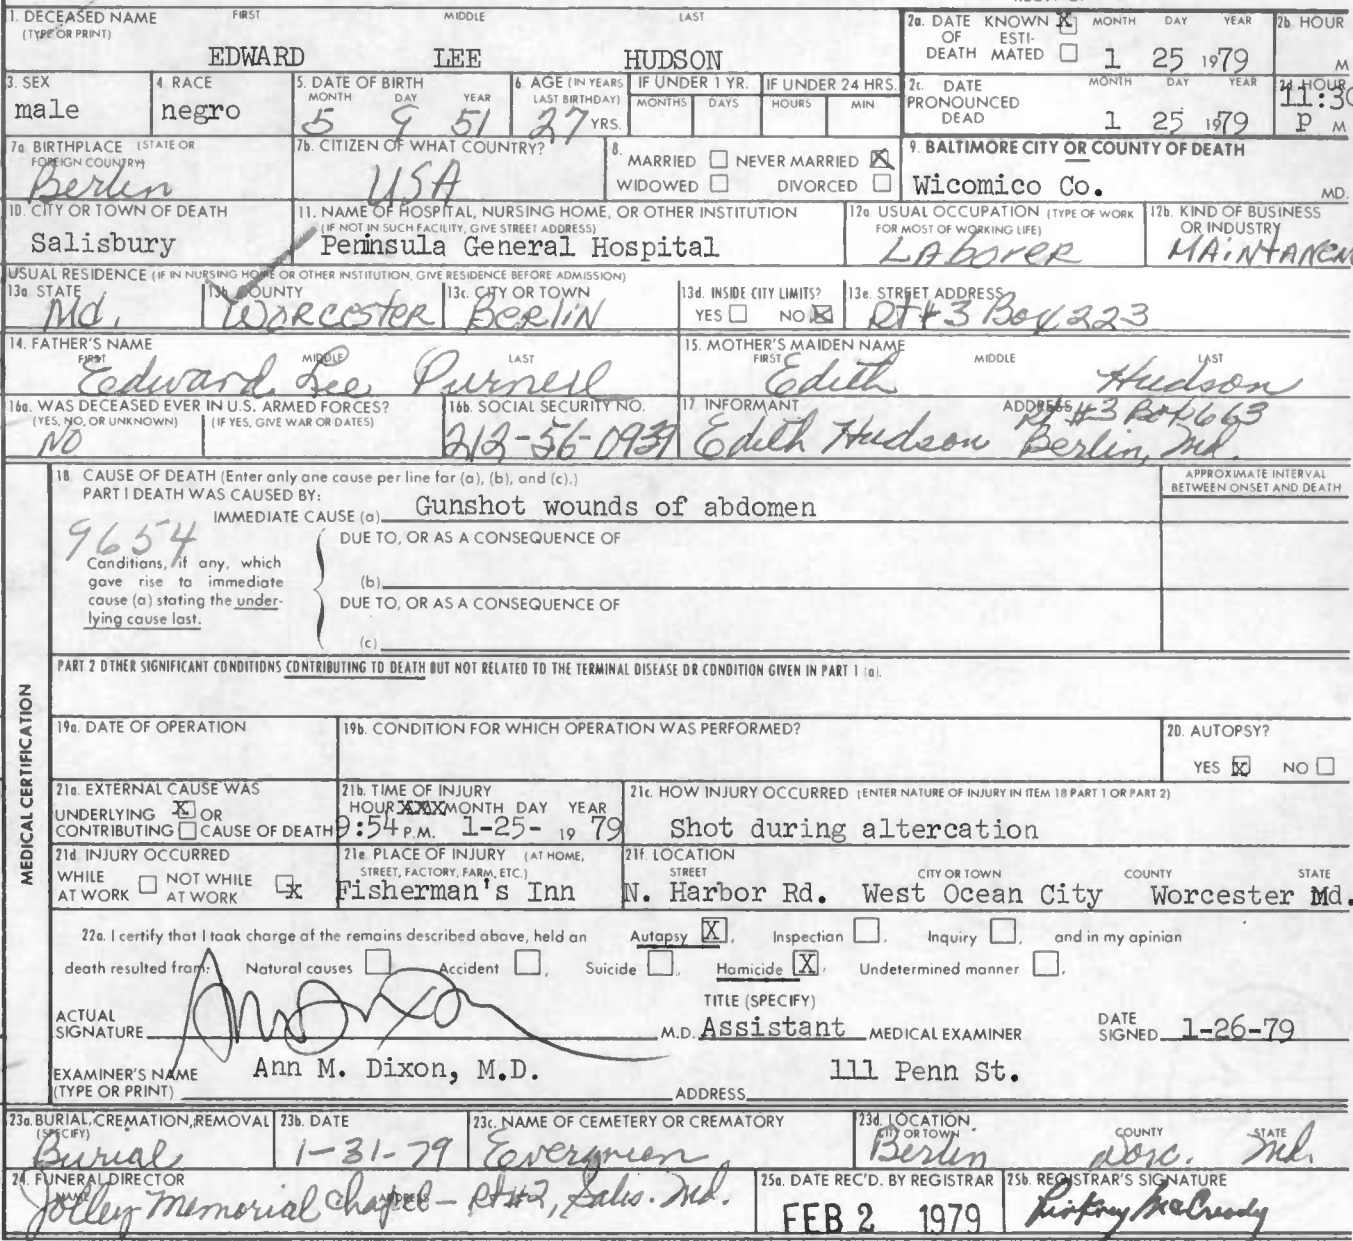 1. DECEASED NAME FIRST MIDDLE LAST
(TYPE OR PRINT)
EDWARD LEE HUDSON
2a. DATE KNOWN X MONTH DAY YEAR
OF ESTI-
DEATH MATED 1 25 1979
2b. HOUR
M
3. SEX
male
4. RACE
negro
5. DATE OF BIRTH
MONTH DAY YEAR
5 9 51
6. AGE (IN YEARS
LAST BIRTHDAY)
27 YRS.
IF UNDER 1 YR.
MONTHS DAYS
IF UNDER 24 HRS.
HOURS MIN
2c. DATE MONTH DAY YEAR
PRONOUNCED
DEAD 1 25 1979
2d HOUR
11:30
P M
7a BIRTHPLACE (STATE OR
FOREIGN COUNTRY)
Berlin
7b. CITIZEN OF WHAT COUNTRY?
USA
8.
MARRIED NEVER MARRIED X
WIDOWED DIVORCED
9. BALTIMORE CITY OR COUNTY OF DEATH
Wicomico Co. MD.
10. CITY OR TOWN OF DEATH
Salisbury
11. NAME OF HOSPITAL, NURSING HOME, OR OTHER INSTITUTION
(IF NOT IN SUCH FACILITY, GIVE STREET ADDRESS)
Peninsula General Hospital
12a. USUAL OCCUPATION (TYPE OF WORK
FOR MOST OF WORKING LIFE)
LAborer
12b. KIND OF BUSINESS
OR INDUSTRY
MAiNTANCN
USUAL RESIDENCE (IF IN NURSING HOME OR OTHER INSTITUTION, GIVE RESIDENCE BEFORE ADMISSION)
13a STATE
Md.
13b. COUNTY
Worcester
13c. CITY OR TOWN
BERLIN
13d. INSIDE CITY LIMITS?
YES NO X
13e. STREET ADDRESS
Rt #3 Box 223
14. FATHER'S NAME
FIRST MIDDLE LAST
Eedward Lee Purnell
15. MOTHER'S MAIDEN NAME
FIRST MIDDLE LAST
Edith Hudson
16a. WAS DECEASED EVER IN U.S. ARMED FORCES?
(YES, NO, OR UNKNOWN) (IF YES, GIVE WAR OR DATES)
NO
16b. SOCIAL SECURITY NO.
212-56-0939
17. INFORMANT ADDRESS
Rt #3 Box 663
Edith Hudson Berlin, Md.
MEDICAL CERTIFICATION
18 CAUSE OF DEATH (Enter only one cause per line for (a), (b), and (c).)
PART I DEATH WAS CAUSED BY:
IMMEDIATE CAUSE (a) Gunshot wounds of abdomen
APPROXIMATE INTERVAL
BETWEEN ONSET AND DEATH
9654
DUE TO, OR AS A CONSEQUENCE OF
Conditions, if any, which
gave rise to immediate
cause (a) stating the under-
lying cause last.
(b)
DUE TO, OR AS A CONSEQUENCE OF
(c)
PART 2 OTHER SIGNIFICANT CONDITIONS CONTRIBUTING TO DEATH BUT NOT RELATED TO THE TERMINAL DISEASE OR CONDITION GIVEN IN PART 1 (a).
19a. DATE OF OPERATION
19b. CONDITION FOR WHICH OPERATION WAS PERFORMED?
20. AUTOPSY?
YES X NO
21a. EXTERNAL CAUSE WAS
UNDERLYING X OR
CONTRIBUTING CAUSE OF DEATH
21b. TIME OF INJURY
HOUR XXX MONTH DAY YEAR
9:54 P.M. 1-25- 19 79
21c. HOW INJURY OCCURRED (ENTER NATURE OF INJURY IN ITEM 18 PART 1 OR PART 2)
Shot during altercation
21d INJURY OCCURRED
WHILE NOT WHILE
AT WORK AT WORK X
21e. PLACE OF INJURY (AT HOME,
STREET, FACTORY, FARM, ETC.)
Fisherman's Inn
21f. LOCATION
STREET CITY OR TOWN COUNTY STATE
N. Harbor Rd. West Ocean City Worcester Md.
22a. I certify that I took charge of the remains described above, held an Autopsy X, Inspection , Inquiry , and in my opinion
death resulted from: Natural causes Accident , Suicide , Homicide X, Undetermined manner .
ACTUAL
SIGNATURE
M.D.
TITLE (SPECIFY)
Assistant MEDICAL EXAMINER
DATE
SIGNED 1-26-79
EXAMINER'S NAME
(TYPE OR PRINT)
Ann M. Dixon, M.D.
ADDRESS
111 Penn St.
23a. BURIAL, CREMATION, REMOVAL
(SPECIFY)
Burial
23b. DATE
1-31-79
23c. NAME OF CEMETERY OR CREMATORY
Evergreen
23d. LOCATION
CITY OR TOWN COUNTY STATE
Berlin Worc. Md.
24. FUNERAL DIRECTOR
NAME ADDRESS
Jolley Memorial Chapel - Rt #2, Salis. Md.
25a. DATE REC'D. BY REGISTRAR
FEB 2 1979
25b. REGISTRAR'S SIGNATURE